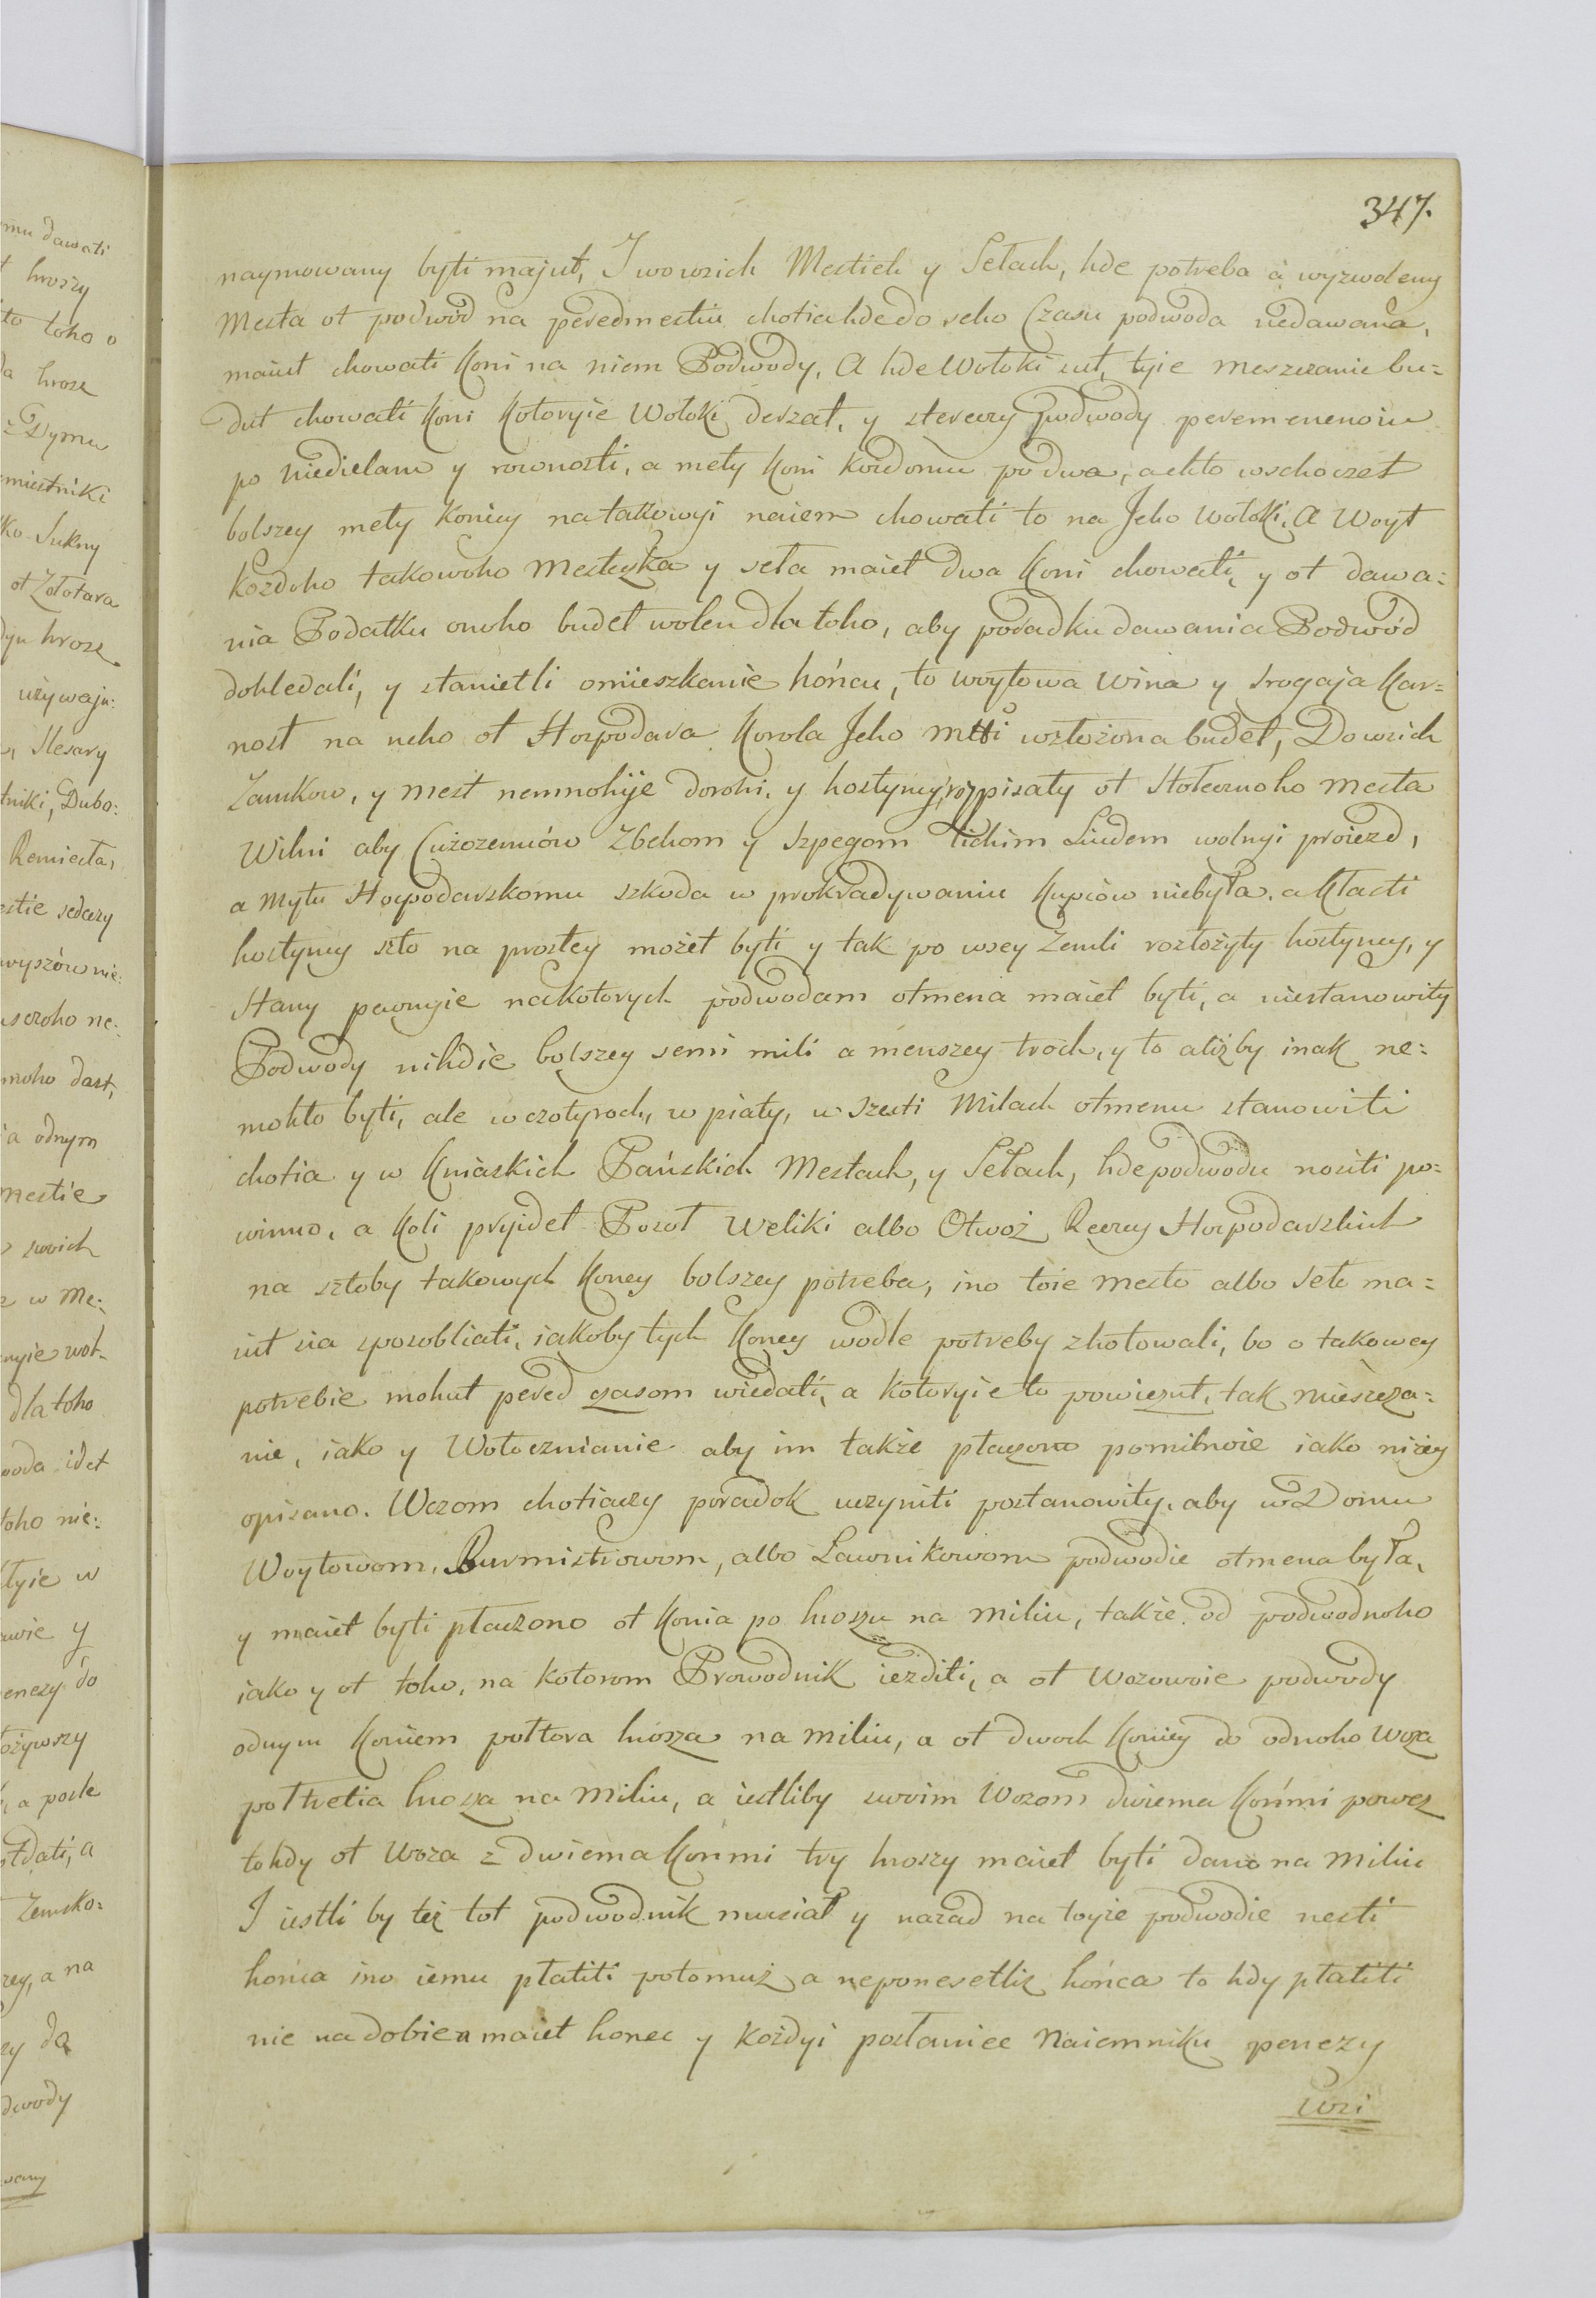 347.
naymowany byti majut, I wowsich Mestich y Sełach, hde potreba à wyzwoleny
Mesta ot podwód na peredmestiu chotia hde do seho Czasu podwoda nedawana,
maiut chowati Koni na niem Podwody, A hde Wołoki sut, tyie meszczanie bu=
dut chowati Koni Kotoryie Wołoki derzat, y stereczy podwody peremenenoiu
po niedielam y rownosti, a mety Koni kozdomu po dwa, achto wschoczet
bolszey mety Koniey natakowyi naiem chowati to na Jeho wołoki. A Woyt
kozdoho takowoho Mesteczka y seła maiet dwa Koni chowati, y ot dawa=
nia Podatku onoho budet wolen dla toho, aby poradku dawania Podwód
dohledali, y stanietli omieszkanie hońcu, to woytowa wina y srogaja Kar=
nost na neho ot Hospodara Korola Jeho Mtti wzłożona budet, Do wsich
Zamkow, y mest nemnohije dorohi, y hostyncy rozpisaty ot Stołecznoho Mesta
Wilni aby Cużozemców Zbehom y szpegom lichim Liudem wolnyi proiezd,
a mytu Hospodarskomu szkoda w prokradywaniu Kupców niebyła, a Kłasti
hostyncy szto na prostey możet byti y tak po wsey Zemli rozłożyty hostyncy, y
Stany pewnyie nakotorych podwodam otmena maiet byti, a niestanowity
Podwody nihdie bolszey semi mili a menszey troch, y to aliżby inak ne=
mohło byti, ale w czotyroch, w piaty, w szesti Milach otmenu stanowiti
chotia y w Kniaskich Pańskich Mestach, y Sełach, hde podwodu nositi po=
winno, a Koli pryidet Posoł Weliki albo Otwoz Reczey Hospodarskich
na sztoby takowych Koney bolszey potreba, ino toie mesto albo seło ma=
iut sia sposobliati, iakoby tych Koney wodle potreby zhotowali, bo o takowey
potrebie mohut pered czasom wiedati, a kotoryie to powiezut, tak mieszcza=
nie, iako y Wołocznianie aby im także płaczono pomilnoie iako niżey
opisano. Wczom chotiaczy poradok uczyniti postanowity, aby w Domu
Woytowom, Burmistrowom, albo Ławnikowom podwodie otmena była,
y maiet byti płaczono ot Konia po hroszu na miliu, także od podwodnoho
iako y ot toho, na kotorom Prowodnik iezditi, a ot Wozowoie podwody
odnym Koniem połtora hrosza na miliu, a ot dwoch Koniey do odnoho Woza
połtretia hrosza na miliu, a iestliby swoim Wozom dwiema Końmi powez
tohdy ot Woza z dwiema Konmi try hroszy maiet byti dano na miliu
I iestli by też tot podwodnik musiał y nazad na toyże podwodie nesti
hońca ino iemu płatiti potomuż a neponesetliz hońca to hdy płatiti
nie nadobie a maiet honec y kożdyi posłaniec Naiemniku penezy
wzi